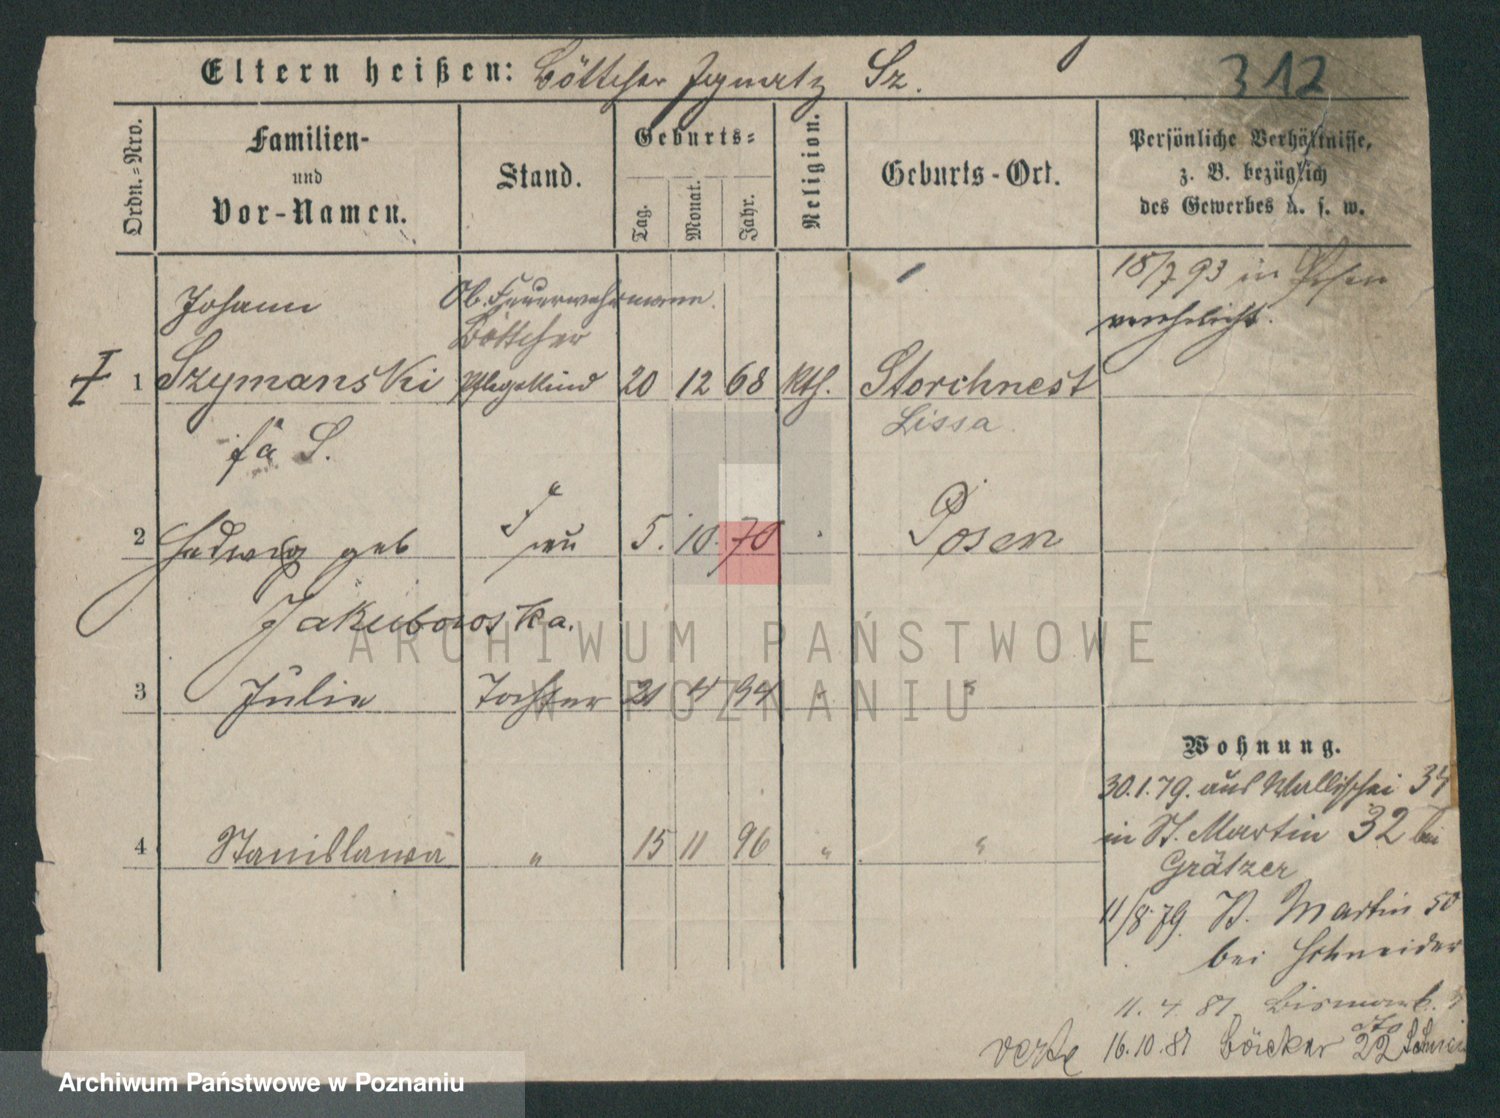 Eltern heißen: Böttcher Ignatz Sz.
312
Ordn.-Nro.
Familien-
und
Vor-Namen.
Stand.
Geburts-
Tag.
Monat.
Jahr.
Religion.
Geburts-Ort.
Persönliche Verhältnisse,
z. B. bezüglich
des Gewerbes u. s. w.
18/7 93 in Posen
verehelicht.
Johann
Ob. Feuerwehrmann.
Böttcher
1 Szymanski Pflegekind 20 12 68 kth. Storchnest
Lissa
fa S.
2 Hedwig geb Frau 5. 10. 70 " Posen
Jakubowska.
3 Julie Tochter 21 4 94 " "
Wohnung.
30.1.79. aus Wallischei 34
in St. Martin 32 bei
Grätzer
4 Stanislawa " 15 11 96 " "
11/8 79. St. Martin 50
bei Schneider
11. 4. 81. Bismarck.
verte 16.10.81 Böcker 22
ARCHIWUM PAŃSTWOWE
W POZNANIU
Archiwum Państwowe w Poznaniu